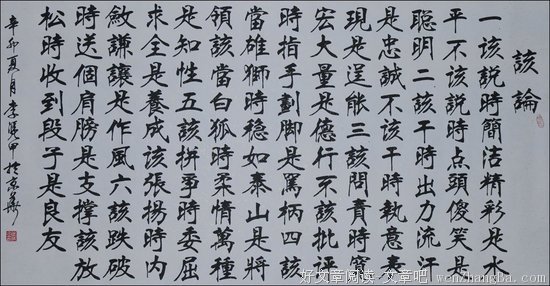 該論
一該説時簡洁精彩是水
平不該説時点頭傻笑是
聪明二該干時出力流汗
是忠誠不該干時執意表
現是逞能三該問責時寬
宏大量是德行不該批評
時指手劃脚是罵柄四該
當雄獅時稳如泰山是將
領該當白狐時柔情萬種
是知性五該拼爭時委屈
求全是養成該張揚時内
斂謙讓是作風六該跌破
時送個肩膀是支撑該放
松時收到段子是良友
辛卯夏月李
好文章阅读 文章吧 wenzhangba.com